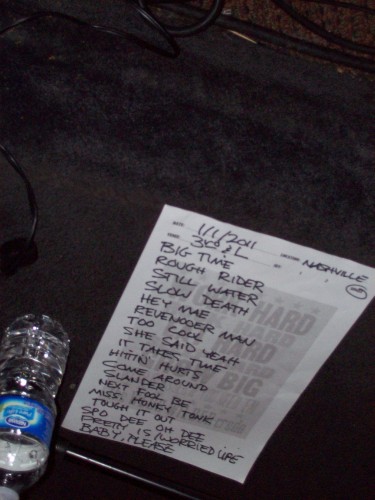 1/1/2011 NASHVILLE
3RD & L
BIG TIME
ROUGH RIDER
STILL WATER
SLOW DEATH
HEY MAE
REVENOOER MAN
TOO COOL
SHE SAID YEAH
IT TAKES TIME
HITTIN' HURTS
COME AROUND
SLANDER
NEXT FOOL BE
MISS. HONKY TONK
TOUGH IT OUT
SPO DEE OH DEE
PRETTY IS/WORRIED LIFE
BABY, PLEASE
HARD
HARD
BIG